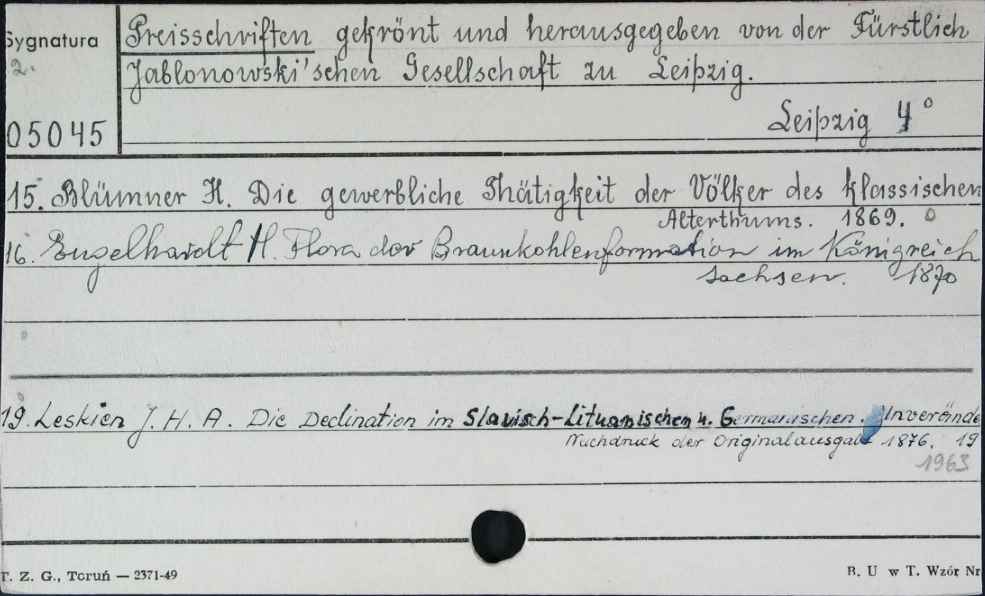 Sygnatura
2.
05045
Preisschriften gekrönt und herausgegeben von der Fürstlich
Jablonowski'schen Gesellschaft zu Leipzig.
Leipzig 4°
15. Blümner H. Die gewerbliche Thätigkeit der Völker des klassischen
Alterthums. 1869.
16. Engelhardt H. Flora der Braunkohlenformation im Königreich
Sachsen. 1870
19. Leskien J. H. A. Die Declination im Slavisch-Lituanischen u. Germanischen. Unverände
Nachdruck der Originalausgabe 1876. 19
1963
T. Z. G., Toruń — 2371-49
B. U w T. Wzór Nr